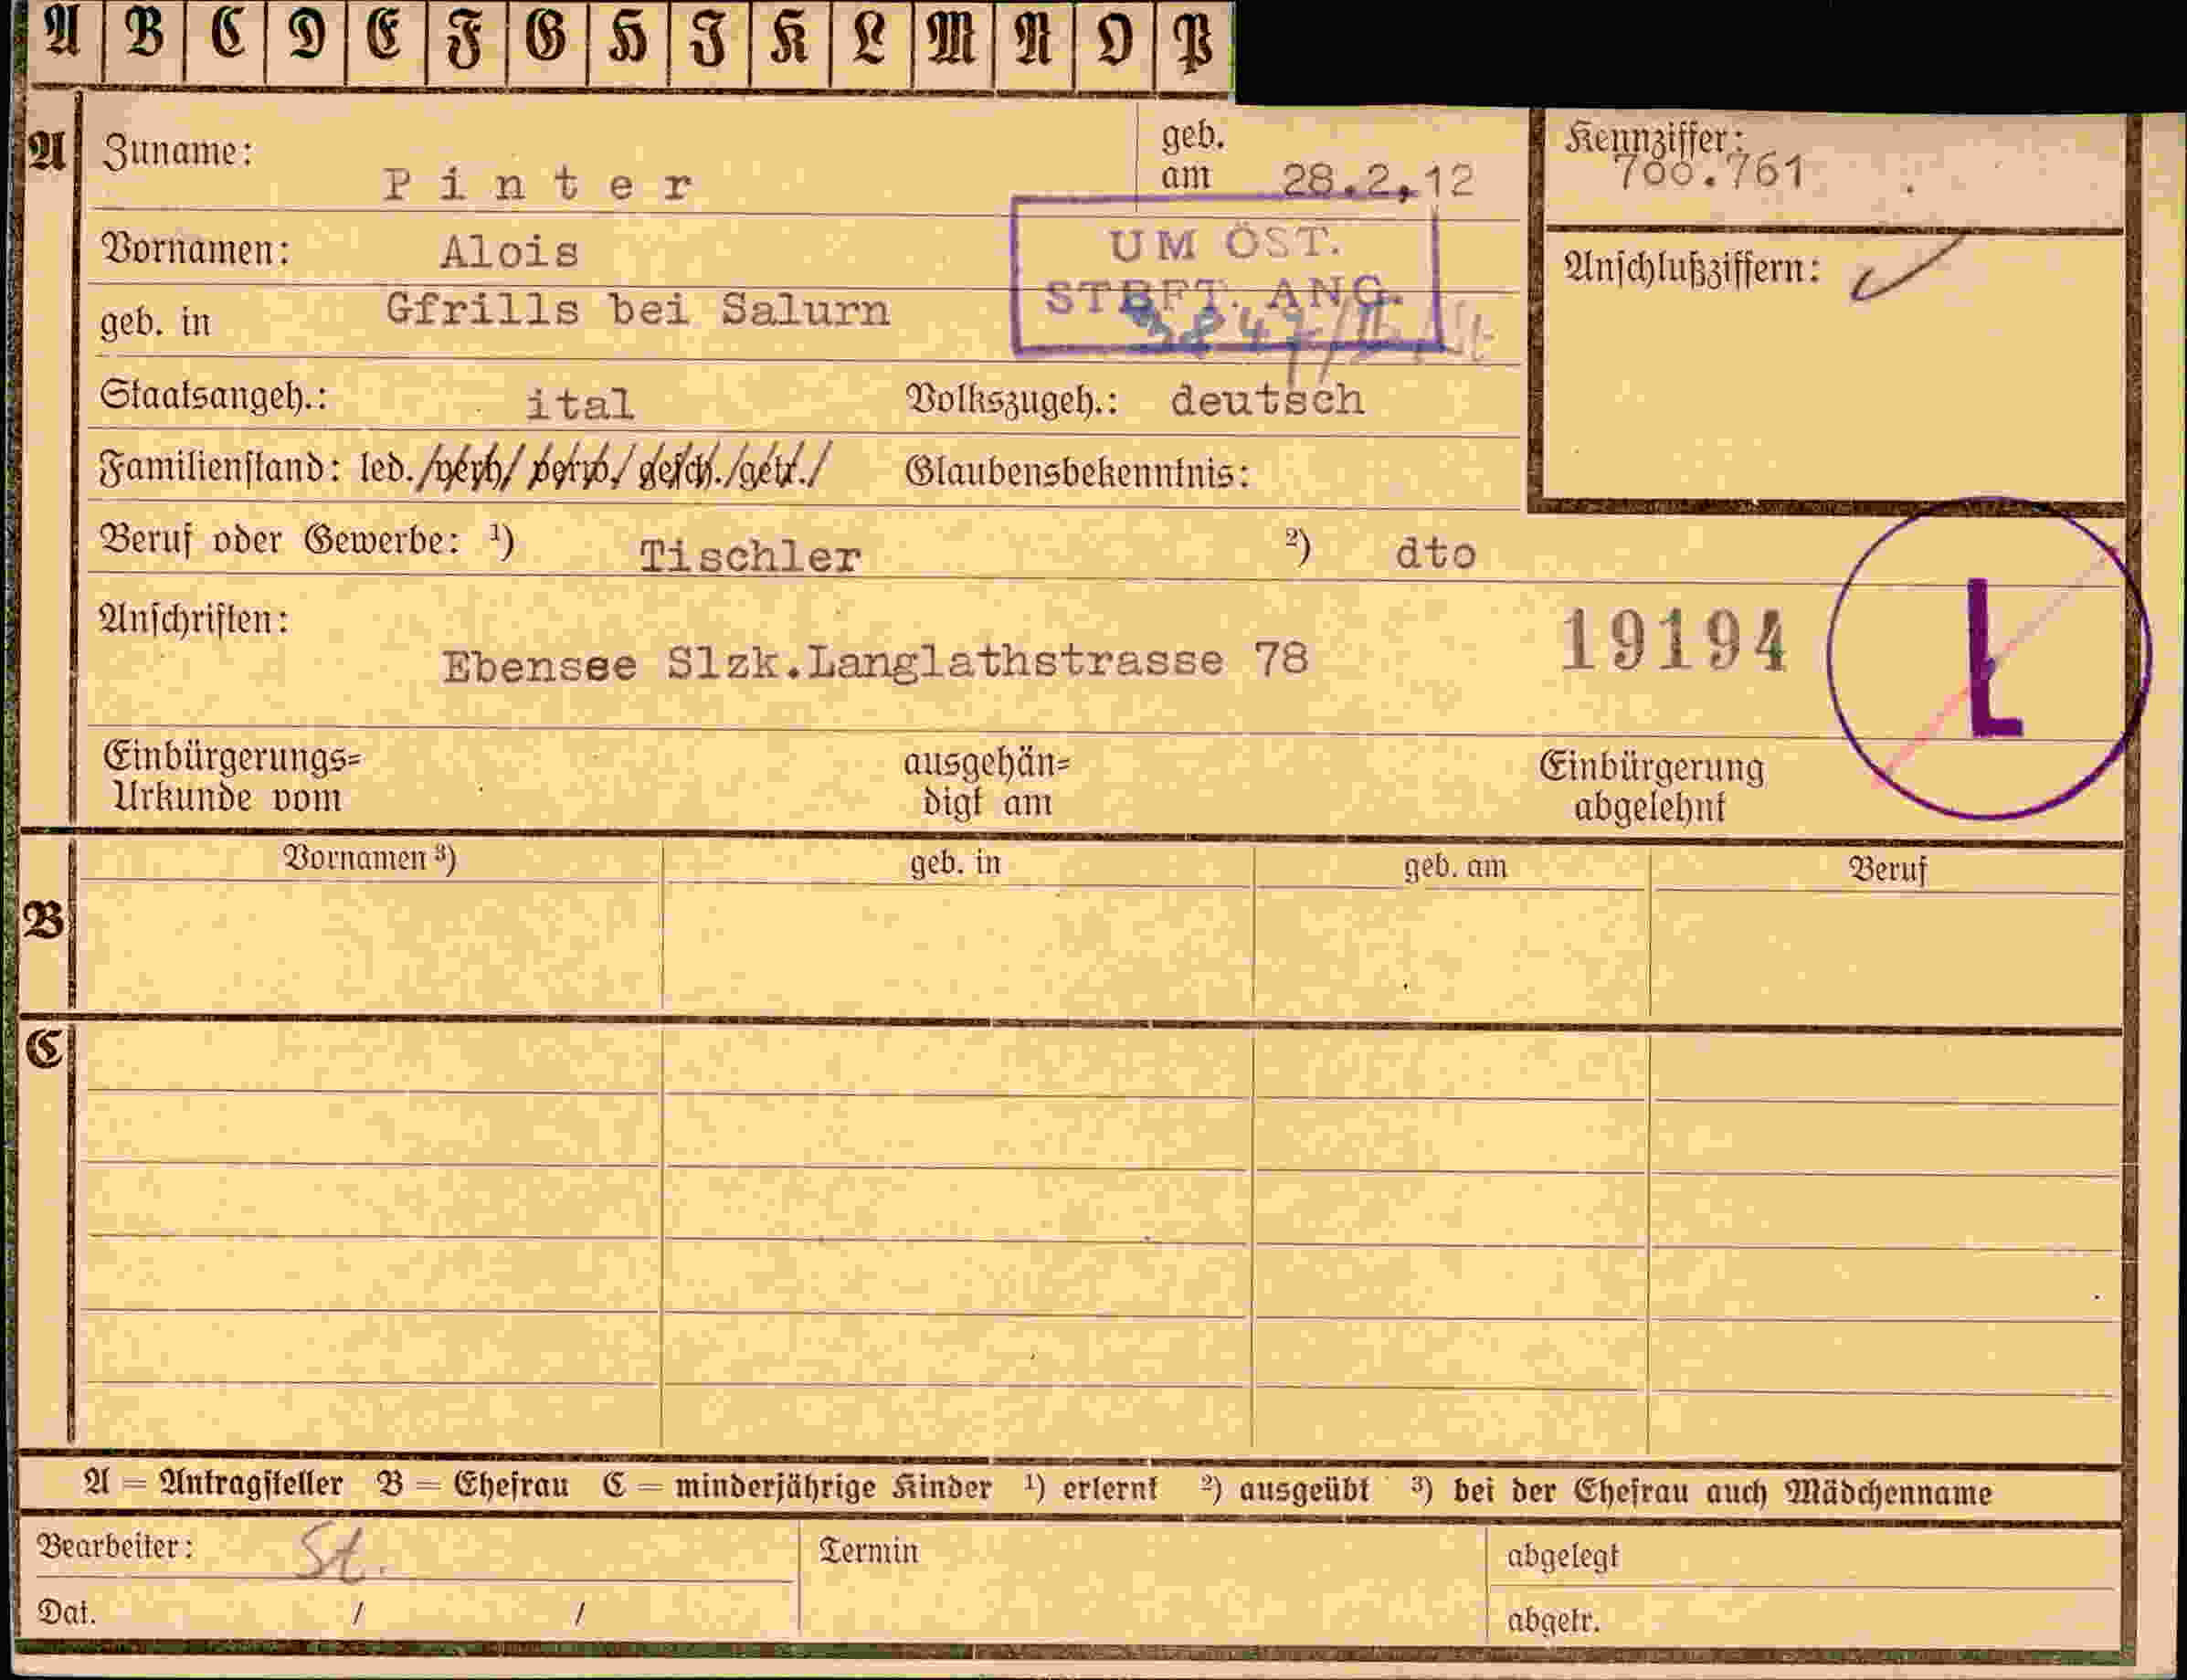 A B C D E F G H I K L M N O P
A Zuname: Pinter geb. am 28.2.12 Kennziffer: 700.761
Vornamen: Alois UM ÖST. Anschlußziffern:
geb. in Gfrills bei Salurn STBFT. ANG.
Staatsangeh.: ital Volkszugeh.: deutsch
Familienstand: led./verh/verw./gesch./getr./ Glaubensbekenntnis:
Beruf oder Gewerbe: ¹) Tischler ²) dto
Anschriften:
Ebensee Slzk.Langlathstrasse 78 19194 L
Einbürgerungs= ausgehän= Einbürgerung
Urkunde vom digt am abgelehnt
Vornamen ³) geb. in geb. am Beruf
B
C
A = Antragsteller B = Ehefrau C = minderjährige Kinder ¹) erlernt ²) ausgeübt ³) bei der Ehefrau auch Mädchenname
Bearbeiter: St. Termin abgelegt
Dat. / / abgetr.